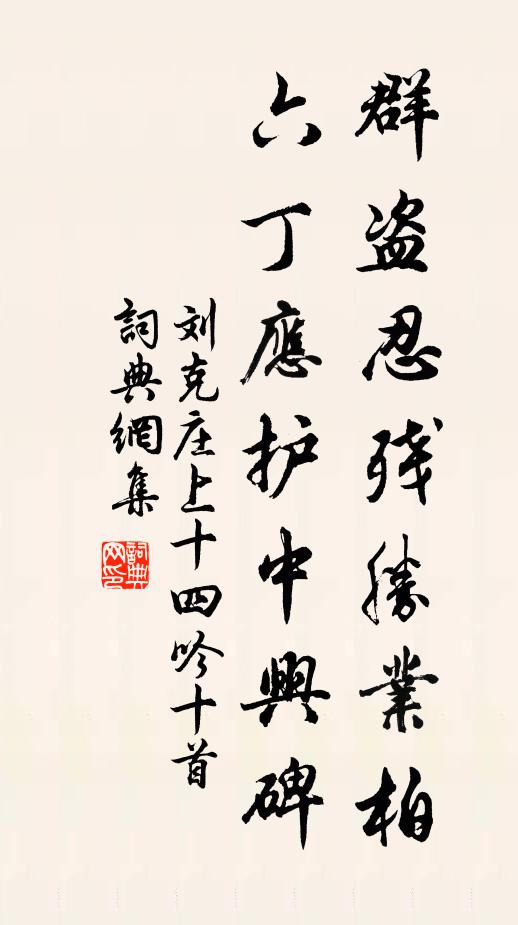 群盗忍残勝業柏
六丁應护中興碑
刘克庄上十四吟十首
詞典網集
詞典網印